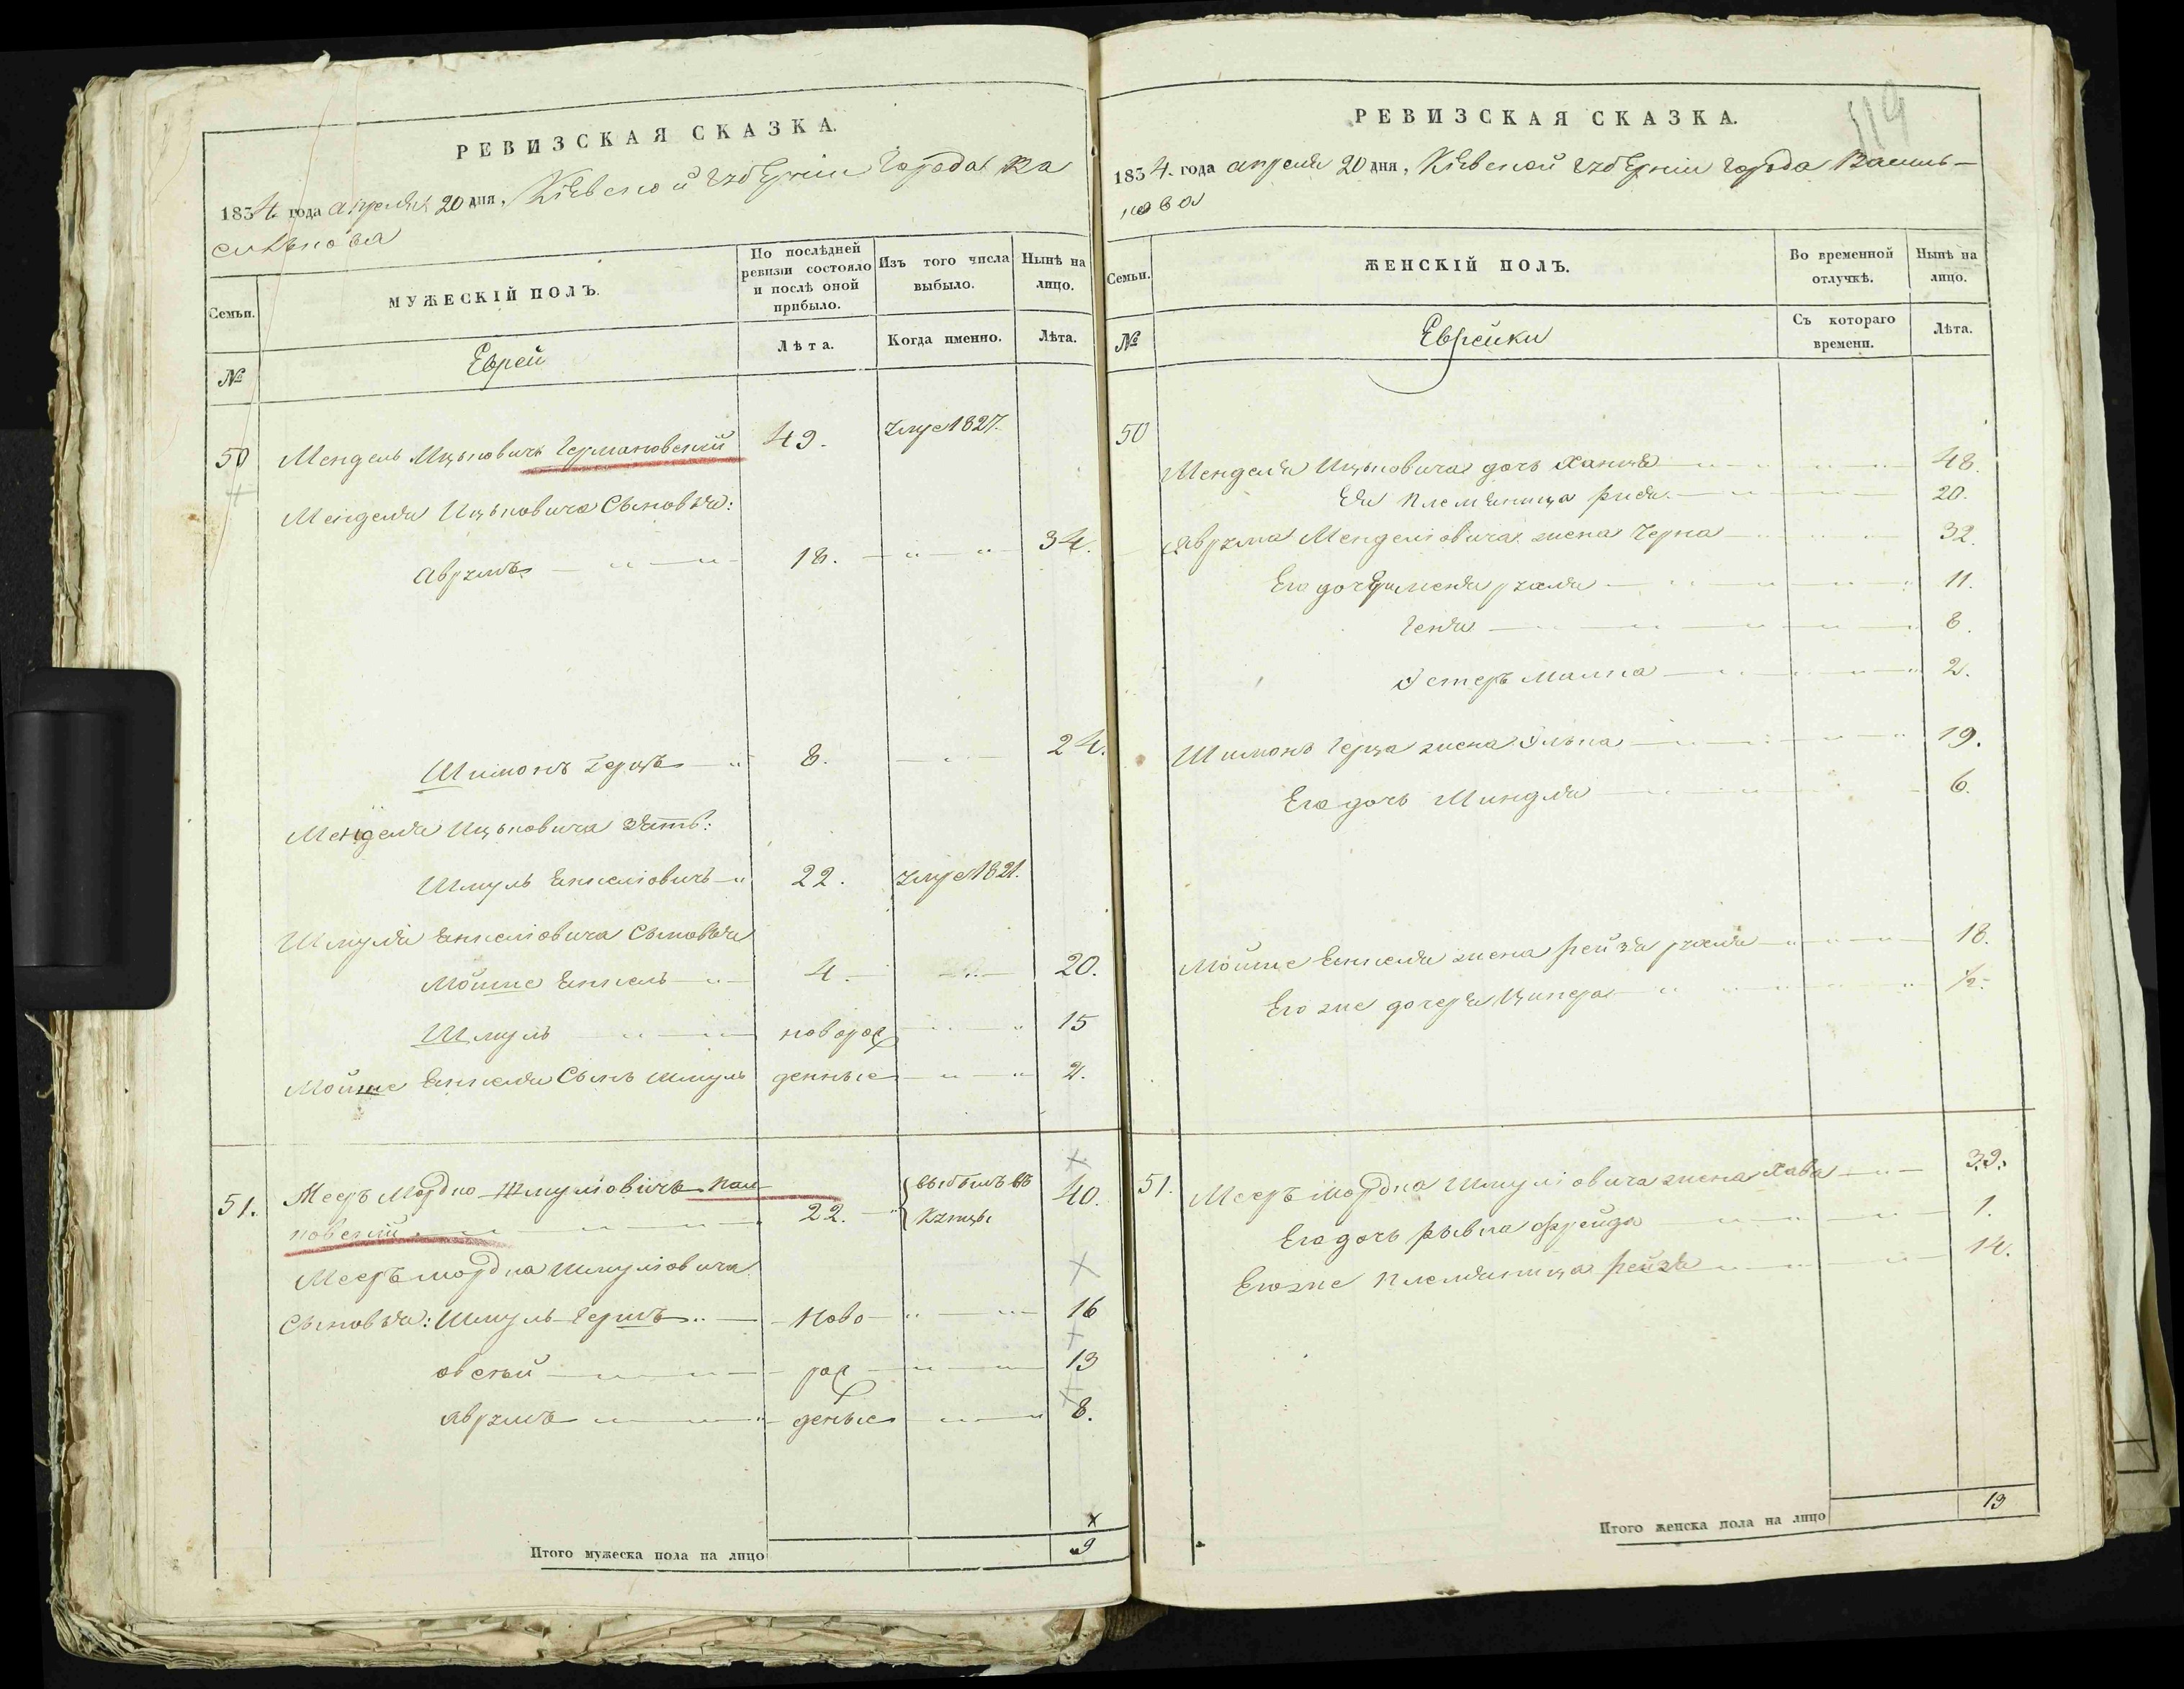 РЕВИЗСКАЯ СКАЗКА.
1834 года апреля 20 дня, Кіевской губерніи города Ва
силькова
Семьи.
МУЖЕСКІЙ ПОЛЪ.
По послѣдней ревизіи состояло и послѣ оной прибыло.
Изъ того числа выбыло.
Нынѣ на лицо.
№
Еврей
Лѣта.
Когда именно.
Лѣта.
50 Мендель Ицьковичъ Германовскій 49. умре 1827.
Менделя Ицьковича Сыновья:
Аврумъ 18. 34.
Шимонъ Герцъ 8. 24.
Менделя Ицьковича зять:
Шмуль Янкеліовичъ 22. умре 1821.
Шмуля Янкеліовича Сыновья
Мойше Янкель 4. 20.
Шмуль новорож 15
Мойше Янкеля Сынъ Шмуль денные 2.
51. Мееръ Мордко Шмуліовичъ Кан
новскій 22. выбылъ въ Купцы 40.
Мееръ Мордка Шмуліовича
Сыновья: Шмуль Гершъ Ново 16
Овсѣй рож 13
Аврумъ деные 8.
Итого мужеска пола на лицо 9
114
РЕВИЗСКАЯ СКАЗКА.
1834. года апреля 20 дня, Кіевской губерніи города Василь-
кова
Семьи.
ЖЕНСКІЙ ПОЛЪ.
Во временной отлучкѣ.
Нынѣ на лицо.
№
Еврейки
Съ котораго времени.
Лѣта.
50
Менделя Ицьковича дочь Ханця 48.
Его племяница Рися 20.
Аврума Менделіовича жена Черна 32.
Его дочери рухля 11.
Геня 8.
Эстеръ Малка 2.
Шимонъ Герца жена Элька 19.
Его дочь Миндля 6.
Мойше Янкеля жена Рейзя рухля 18.
Его же дочеря Ципера ½.
51. Мееръ Мордка Шмуліовича жена Хава 39.
Его дочь Рывка фрейда 1.
Его же племяница Рейзя 14.
Итого женска пола на лицо 13